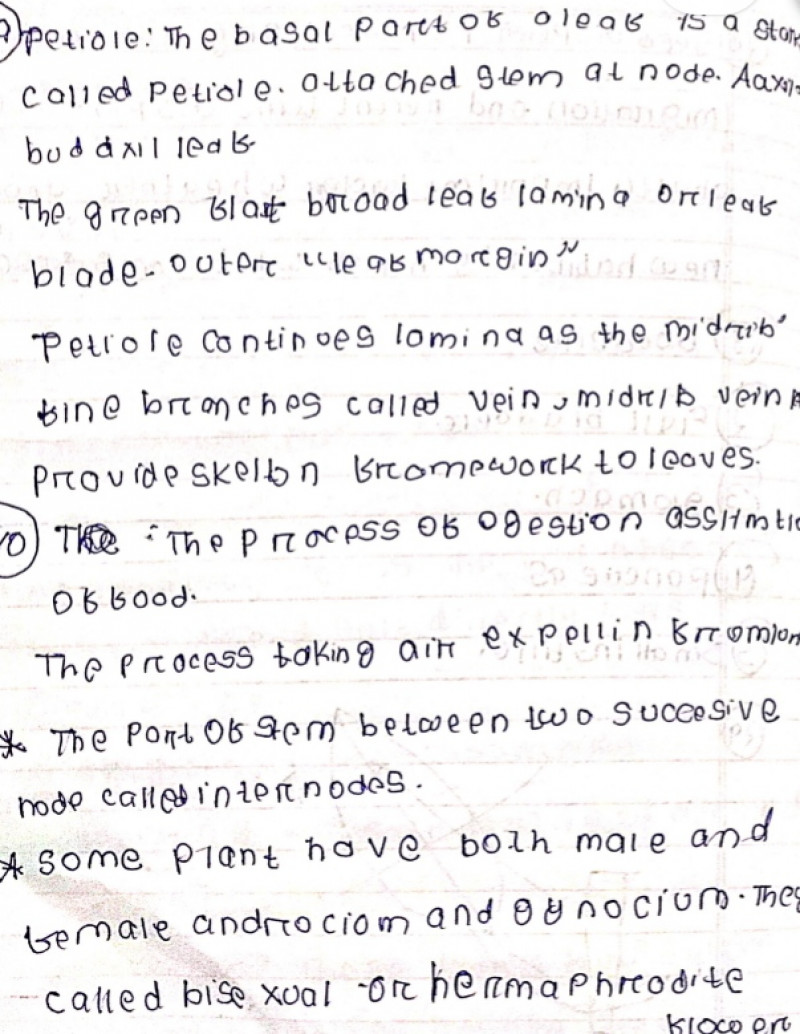 Petiole: The basal part of a leaf is a stalk
called Petiole. attached stem at node. Aaxi-
bud axil leaf
The green flat broad leaf lamina or leaf
blade- outer "leaf margin"
Petiole Continoes lamina as the midrib'
fine branches called vein, midrib vein
provide skelton framework to leaves.
10) The : The process of ogestion assitmtio
of food.
The process taking air expellin from lon
* The part of stem between two succesive
node called internodes.
* some plant have both male and
female androciom and gynocium. Thes
called bisexual or hermaphreodite
flower